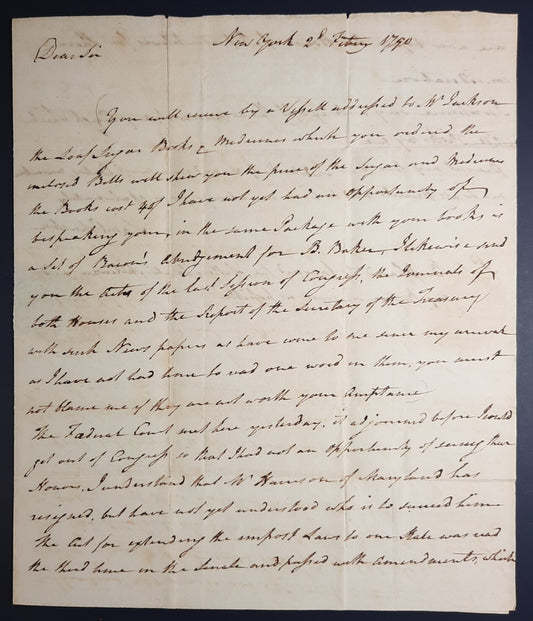 New York 2d. Febry 1790
Dear Sir
You will receive by a Vessell addressed to Mr Jackson
the Loaf Sugar Books & Medicines which you ordered the
inclosed Bills will shew you the price of the Sugar and Medicines
the Books cost I have not yet had an opportunity of
bespeaking your, in the same Package with your books is
a Set of Bacon's Abridgement for B. Baker, I likewise send
you the Acts of the last Session of Congress, the Journals of
both Houses and the Report of the Secretary of the Treasury
with such News papers as have come to me since my arrival
as I have not had time to read one word in them, you must
not blame me if they are not worth your Acceptance
The Fœderal Court met here yesterday, it adjourned before I could
get out of Congress so that I had not an Opportunity of seeing their
Honors, I understand that Mr Harrison of Maryland has
resigned, but have not yet understood who is to succeed him
The Act for extending the impost Laws to our State was read
the third time in the Senate and passed with amendments, which